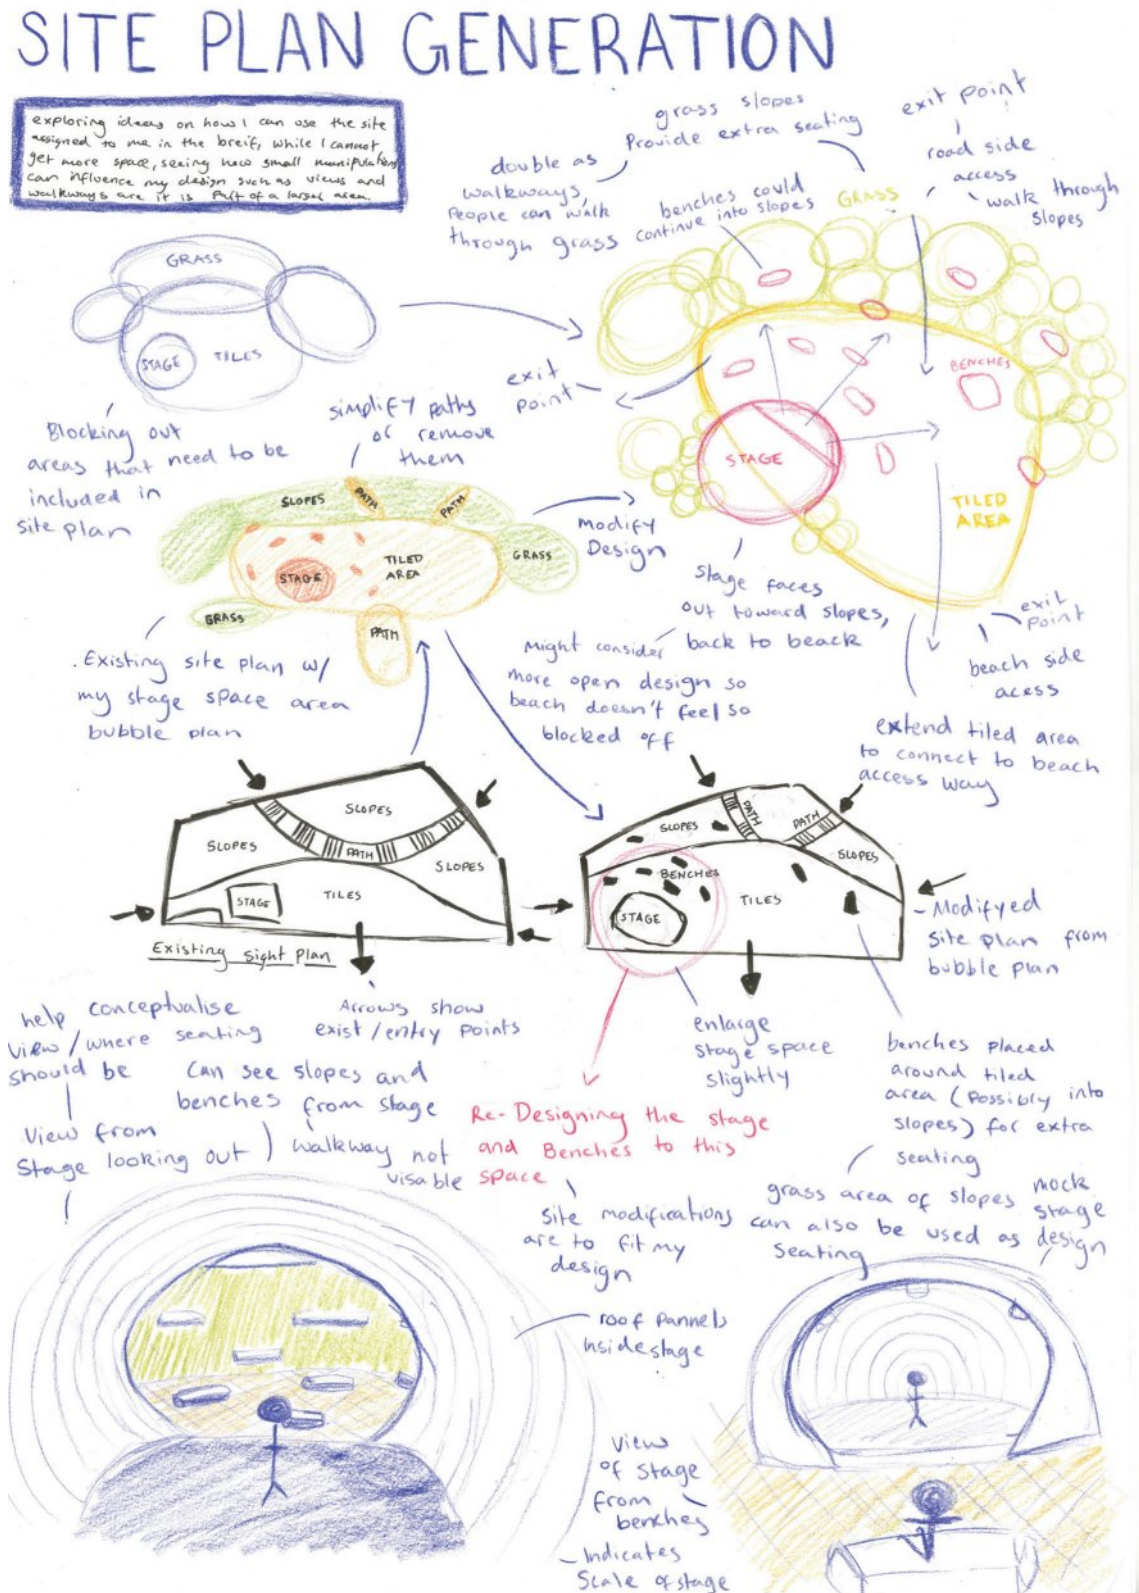 SITE PLAN GENERATION
exploring ideas on how I can use the site
assigned to me in the breif, while I cannot
get more space, seeing how small manipulations
can influence my design such as views and
walkways are it is Part of a larger area.
grass slopes
Provide extra seating
exit point
road side
access
walk through
slopes
double as
walkways,
People can walk
through grass
benches could
continue into slopes
GRASS
GRASS
STAGE
TILES
Blocking out
areas that need to be
included in
site plan
simplify paths
or remove
them
exit
point
BENCHES
STAGE
TILED
AREA
SLOPES
PATH
PATH
TILED
AREA
STAGE
GRASS
GRASS
PATH
Modify
Design
stage faces
out toward slopes,
back to beack
exit
point
beach side
acess
. Existing site plan w/
my stage space area
bubble plan
Might consider
more open design so
beach doesn't feel so
blocked off
extend tiled area
to connect to beach
access way
SLOPES
SLOPES
PATH
SLOPES
STAGE
TILES
Existing sight Plan
SLOPES
PATH
PATH
SLOPES
BENCHES
STAGE
TILES
- Modifyed
site plan from
bubble plan
help conceptualise
view/where seating
should be
View from
Stage looking out
Arrows show
exist/entry points
can see slopes and
benches from stage
walkway not
visable
enlarge
stage space
slightly
Re-Designing the stage
and Benches to this
space
benches placed
around tiled
area (possibly into
slopes) for extra
seating
site modifications
are to fit my
design
grass area of slopes
can also be used as
seating
mock
stage
design
roof pannels
insidestage
view
of stage
from
benches
- Indicates
Scale of stage